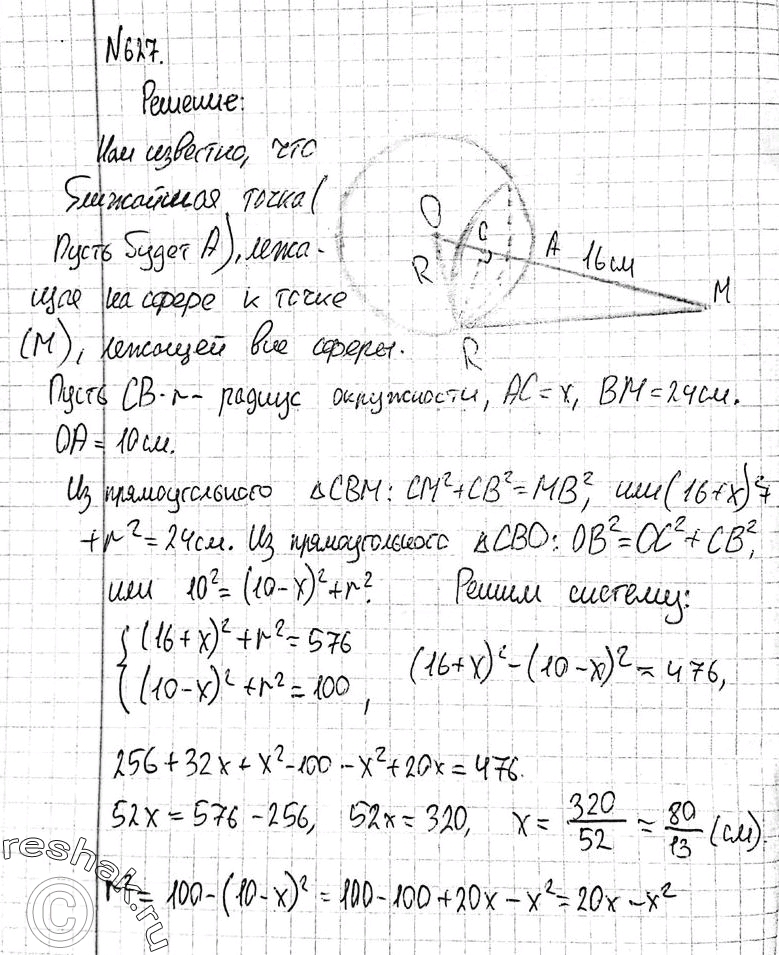 N627.
Решение:
Нам известно, что
ближайшая точка (
Пусть будет А), лежа-
щая на сфере к точке
(М), лежащей вне сферы.
O
C
A
16 см
M
R
R
Пусть CB - r - радиус окружности, AC = x, BM = 24 см.
OA = 10 см.
Из прямоугольного ΔCBM: CM² + CB² = MB², или (16+x)² +
+ r² = 24 см. Из прямоугольного ΔCBO: OB² = OC² + CB²,
или 10² = (10-x)² + r². Решим систему:
{ (16+x)² + r² = 576
{ (10-x)² + r² = 100, (16+x)² - (10-x)² = 476,
256 + 32x + x² - 100 - x² + 20x = 476.
52x = 576 - 256, 52x = 320, x = 320/52 = 80/13 (см).
r² = 100 - (10-x)² = 100 - 100 + 20x - x² = 20x - x²
© reshak.ru